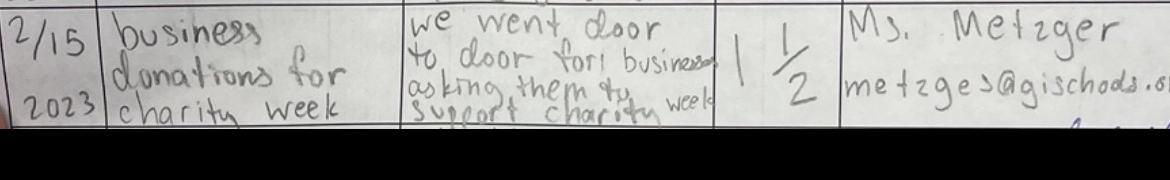 2/15
2023
business
donations for
charity week
we went door
to door for business
asking them to
support charity week
1 1/2
Ms. Metzger
metzges@gischools.o